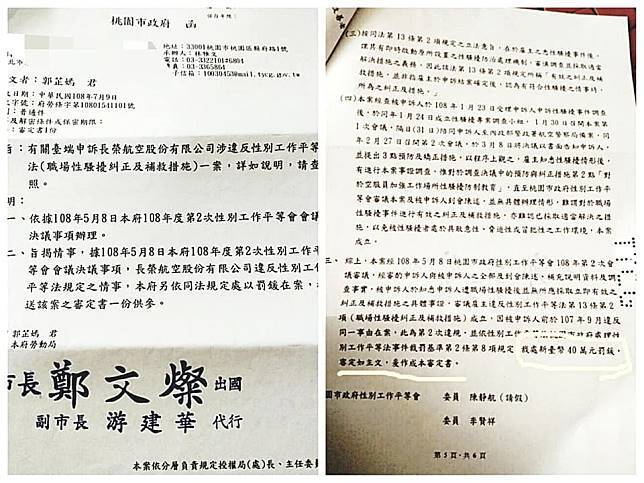 桃園市政府 函
地址：33001桃園市桃園區縣府路1號
承辦人：林雅文
電話：03-3322101#6804
傳真：03-3365864
子信箱：10030453@mail.tycg.gov.tw
文者：郭芷嫣 君
文日期：中華民國108年7月9日
文字號：府勞條字第10801541101號
別：普通件
及解密條件或保密期限：
：審定書1份
旨：有關臺端申訴長榮航空股份有限公司涉違反性別工作平等
法(職場性騷擾糾正及補救措施)一案，詳如說明，請查
照。
明：
一、依據108年5月8日本府108年度第2次性別工作平等會會議
決議事項辦理。
二、旨揭情事，據108年5月8日本府108年度第2次性別工作平
等會會議決議事項，長榮航空股份有限公司違反性別工作平
等法規定之情事，本府另依同法規定處以罰鍰在案，檢
送該案之審定書一份供參。
郭芷嫣 君
本府勞動局
市長 鄭文燦 出國
副市長 游建華 代行
本案依分層負責規定授權局(處)長、主任委員
(三)按同法第13條第2項規定之立法意旨，在於雇主之性騷擾事件後，
課其有即時啟動原所設置之性騷擾防治處理機制，審慎調查並採取適當
解決措施之義務，因此該法第13條第2項規定所稱「有效之糾正及補
救措施，並非指雇主於申訴結果確定後，認為有符合性騷擾之情事時，
所為之措施。
(四)本案經查被申訴人於108年1月23日受理申訴人申訴性騷擾事件調查
後，於同年1月24日成立性騷擾事件專案調查小組，1月30日召開本案第
1次會議，隔日(31)陪同申訴人至內政部警政署航空警察局備案，同
年2月27日召開第2次會議，於3月8日將決議以書面告知申訴人，
並提出3點預防及矯正措施，以程序上觀之，雇主知悉性騷擾情形後，
有進行本案事證調查，惟對於調查決議中的預防與糾正措施第2點「對
於空服員加強工作場所性騷擾防制教育」，直至桃園市政府性別工作平
等會審議本案及被申訴人到會陳述，並無具體辦理情形，難謂對於職場
性騷擾事件進行有效之糾正及補救措施，亦難認已採取適當解決之措
施，以免被性騷擾者處於具敵意性、脅迫性或冒犯性之工作環境，本案
成立。
三、綜上，本案經108年5月8日桃園市政府性別工作平等會108年第2次會
議審議，經審酌申訴人與被申訴人之全部及到會陳述、補充說明資料及調
查事實，被申訴人於知悉申訴人遭職場性騷擾後並無所應採取立即有效之
糾正及補救措施之具體事證，審議雇主違反性別工作平等法第13條第2
項(職場性騷擾糾正及補救措施)成立，因被申訴人前於107年9月違反
同一事由在案，此為第2次違規，並依性別工作平等法桃園市政府處理性
別工作平等法事件裁罰基準第2條第8項規定 裁處新臺幣40萬元罰鍰，
審定如主文，爰作成本審定書。
園市政府性別工作平等會 委員 陳靜航(請假)
委員 李賢祥
第5頁，共6頁